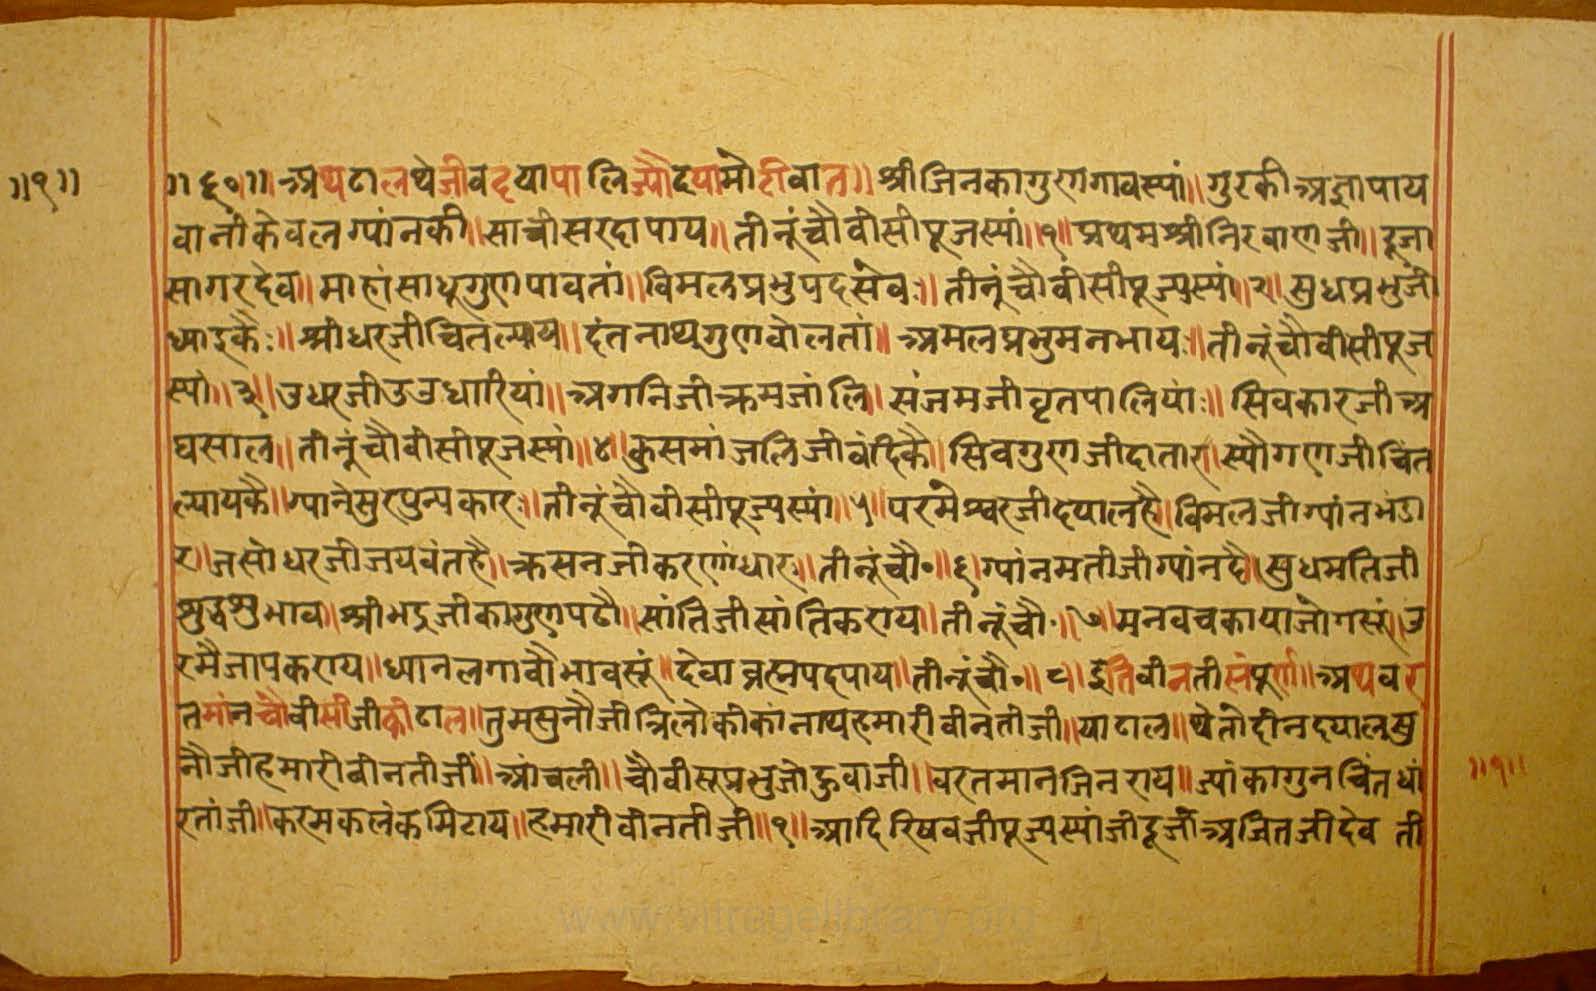 ॥१॥ ॥६०॥ अथ ढाल थे जीव दया पालिज्यौ दया मोटी वात ॥ श्री जिनका गुण गावस्यां ॥ गुरकी अज्ञा पाय
वानी केवल ग्यांनकी ॥ साची सरदा पाय ॥ तीनूं चौवीसी पूजस्यां ॥१॥ प्रथम श्री निरवाण जी ॥ दूजा
सागर देव ॥ माहां साधू गुण पावतां ॥ विमल प्रभु पद सेवः ॥ तीनूं चौवीसी पूज्यस्यां ॥२॥ सुध प्रभुजी
ध्याइकैः ॥ श्रीधरजी चित ल्याय ॥ दंत नाथ गुण वोलतां ॥ अमल प्रभु मन भायः ॥ तीनूं चौवीसी पूज
स्यां ॥३॥ उधरजी उउधारियां ॥ अगनिजी क्रम जांलि ॥ संजमजी वृत पालियांः ॥ सिवकारजी अ
घसाल ॥ तीनूं चौवीसी पूजस्यां ॥४॥ कुसमांजलिजी वंदिकै ॥ सिवगुणजी दातार ॥ स्यौगणजी चित
ल्यायकै ॥ ग्यानेसुर पुन्यकारः ॥ तीनूं चौवीसी पूज्यस्यां ॥५॥ परमेश्वरजी दयाल है ॥ विमलजी ग्यांन भंडा
र ॥ जसोधरजी जयवंत है ॥ क्रसनजी करणां धार ॥ तीनूं चौ॰ ॥६॥ ग्यांनमतीजी ग्यांन दै ॥ सुधमतिजी
शुद्ध शुभाव ॥ श्रीभद्रजी का गुण पढौ ॥ सांतिजी सांति कराय ॥ तीनूं चौ॰ ॥७॥ मन वच काया जोगसूं ॥ उ
रमै जाप कराय ॥ ध्यान लगावौ भावसूं ॥ देवा ब्रह्म पद पाय ॥ तीनूं चौ॰ ॥८॥ इति वीनती संपूर्ण ॥ अथ वर
तमांन चौवीसी जी की ढाल ॥ तुम सुनौजी त्रिलोकी का नाथ हमारी वीनतीजी ॥ या ढाल ॥ थे तो दीन दयाल सु
नौजी हमारी वीनतीजी ॥ आंचली ॥ चौवीसूं प्रभुजो हुवाजी ॥ वरतमान जिनराय ॥ ज्यांका गुन चित धा
रतांजी ॥ करम कलंक मिटाय ॥ हमारी वीनतीजी ॥१॥ आदि रिषवजी पूज्यस्यांजी दूजी अजितजी देव ती
॥१॥
www.vitragelibrary.org